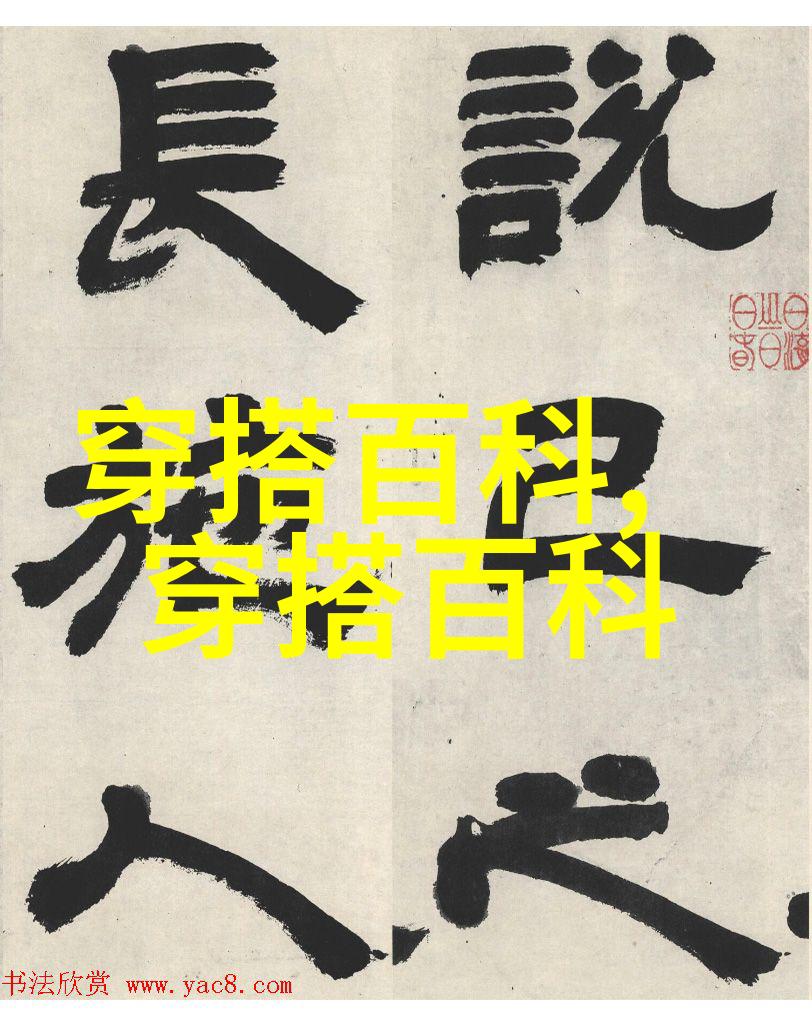 說己之
長施人
穿搭百科,
穿搭百科
书法欣赏 www.yac8.com